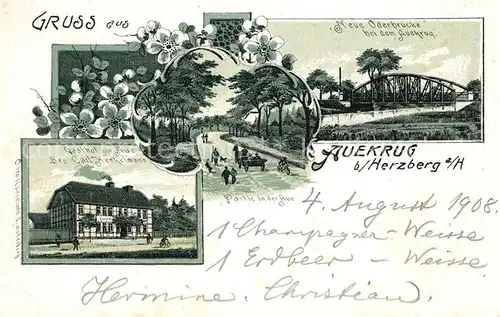 GRUSS aus
"Neue Oderbrücke"
bei dem Auekrug
AUEKRUG
b/Herzberg a/H
Gasthof zur Aue
Bes. Carl
Partie in der Aue
4. August 1908.
1 Champagner-Weisse
1 Erdbeer - Weisse
Hermine. Christian.